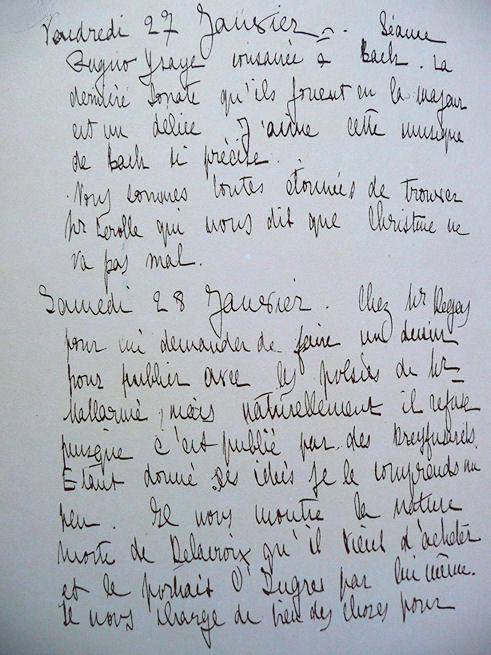 Vendredi 27 Janvier. Séance
Pugno Ysaye consacrée à Bach. La
dernière Sonate qu'ils jouent en la majeur
est un délice. J'aime cette musique
de Bach si précise.
Nous sommes toutes étonnées de trouver
Mr Lerolle qui nous dit que Christine ne
va pas mal.
Samedi 28 Janvier. Chez Mr Degas
pour lui demander de faire un dessin
pour publier avec les poésies de Mr
Mallarmé, mais naturellement il refuse
puisque c'est publié par des Dreyfusards.
Etant donné ses idées je le comprends un
peu. Il nous montre la nature
morte de Delacroix qu'il vient d'acheter
et le portrait d'Ingres par lui même.
Il nous charge de bien des choses pour